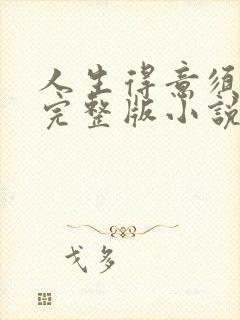 人生得意须
完整版小説
戈多